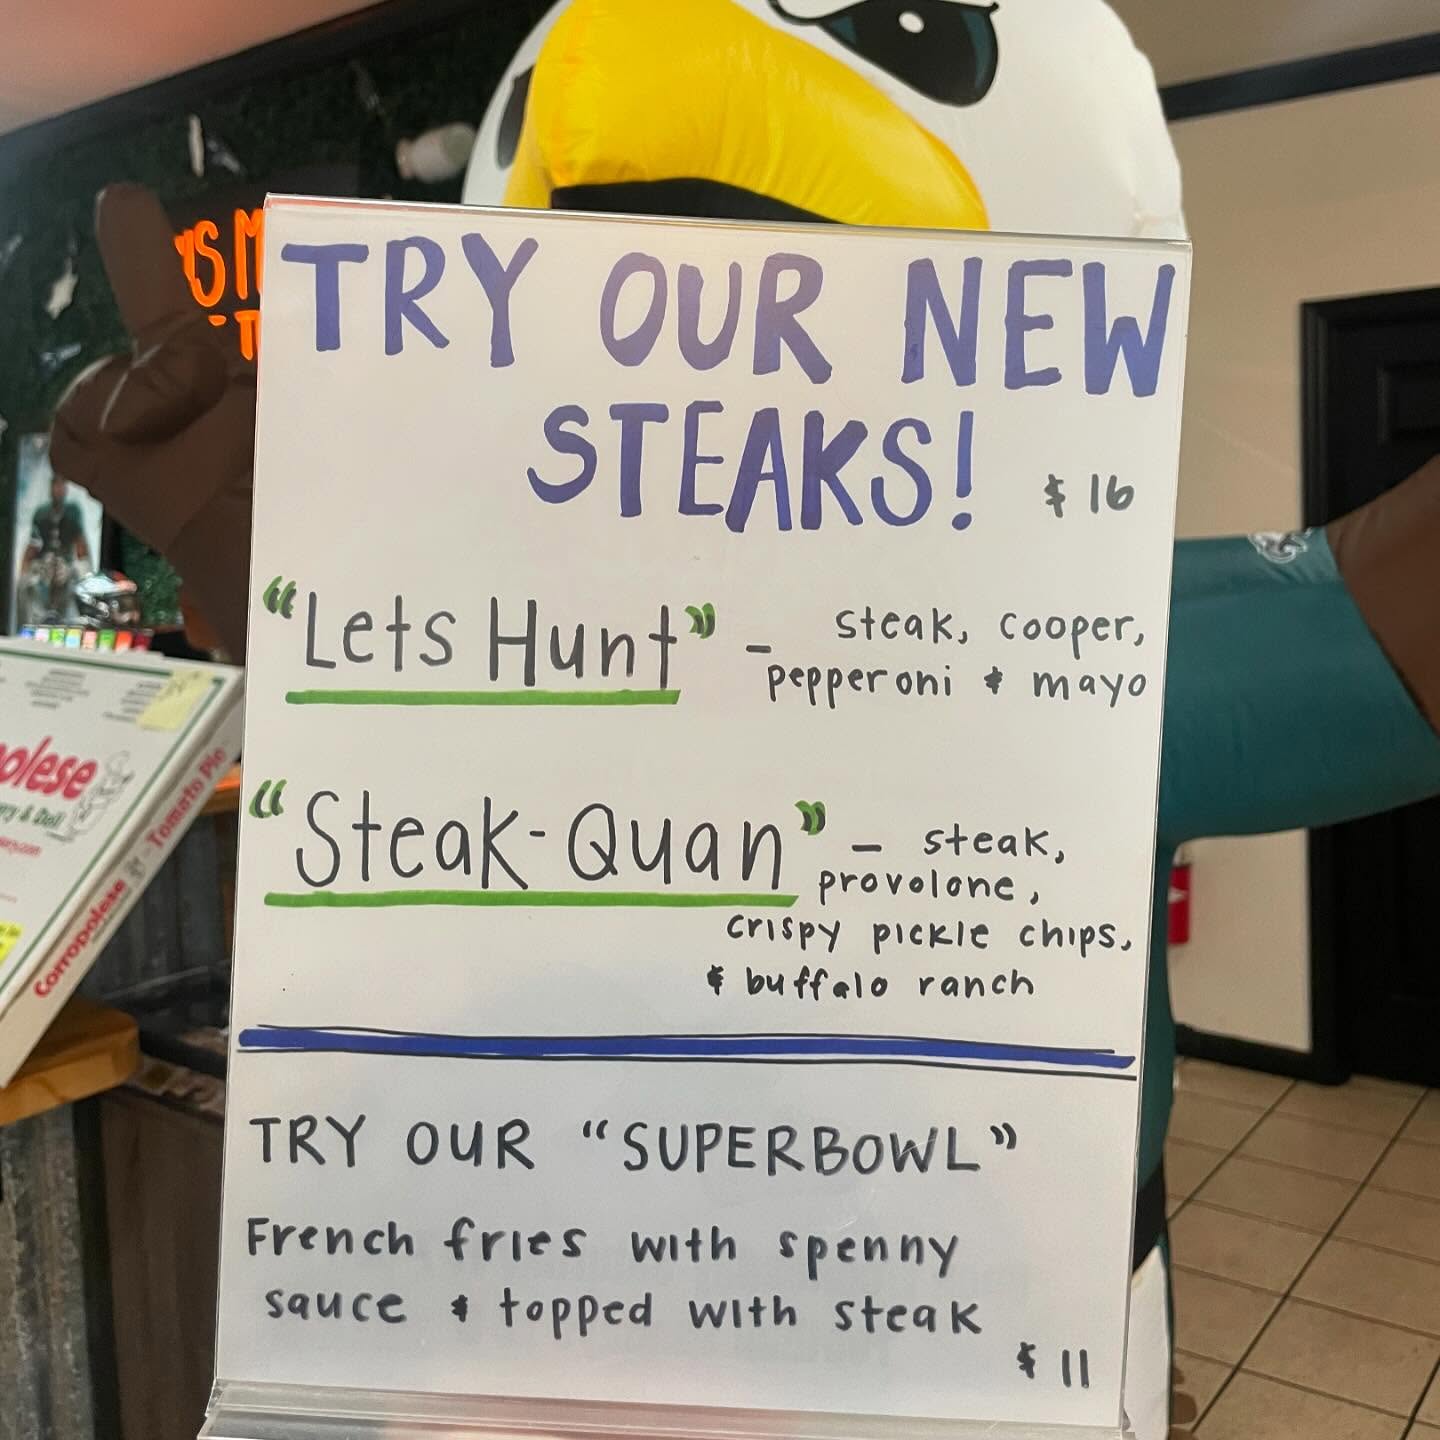 TRY OUR NEW
STEAKS! $16
"Lets Hunt" - steak, cooper,
pepperoni & mayo
"Steak-Quan" - steak,
provolone,
crispy pickle chips,
& buffalo ranch
TRY OUR "SUPERBOWL"
French fries with spenny
sauce & topped with steak
$11
Corropolese
Tomato Pie